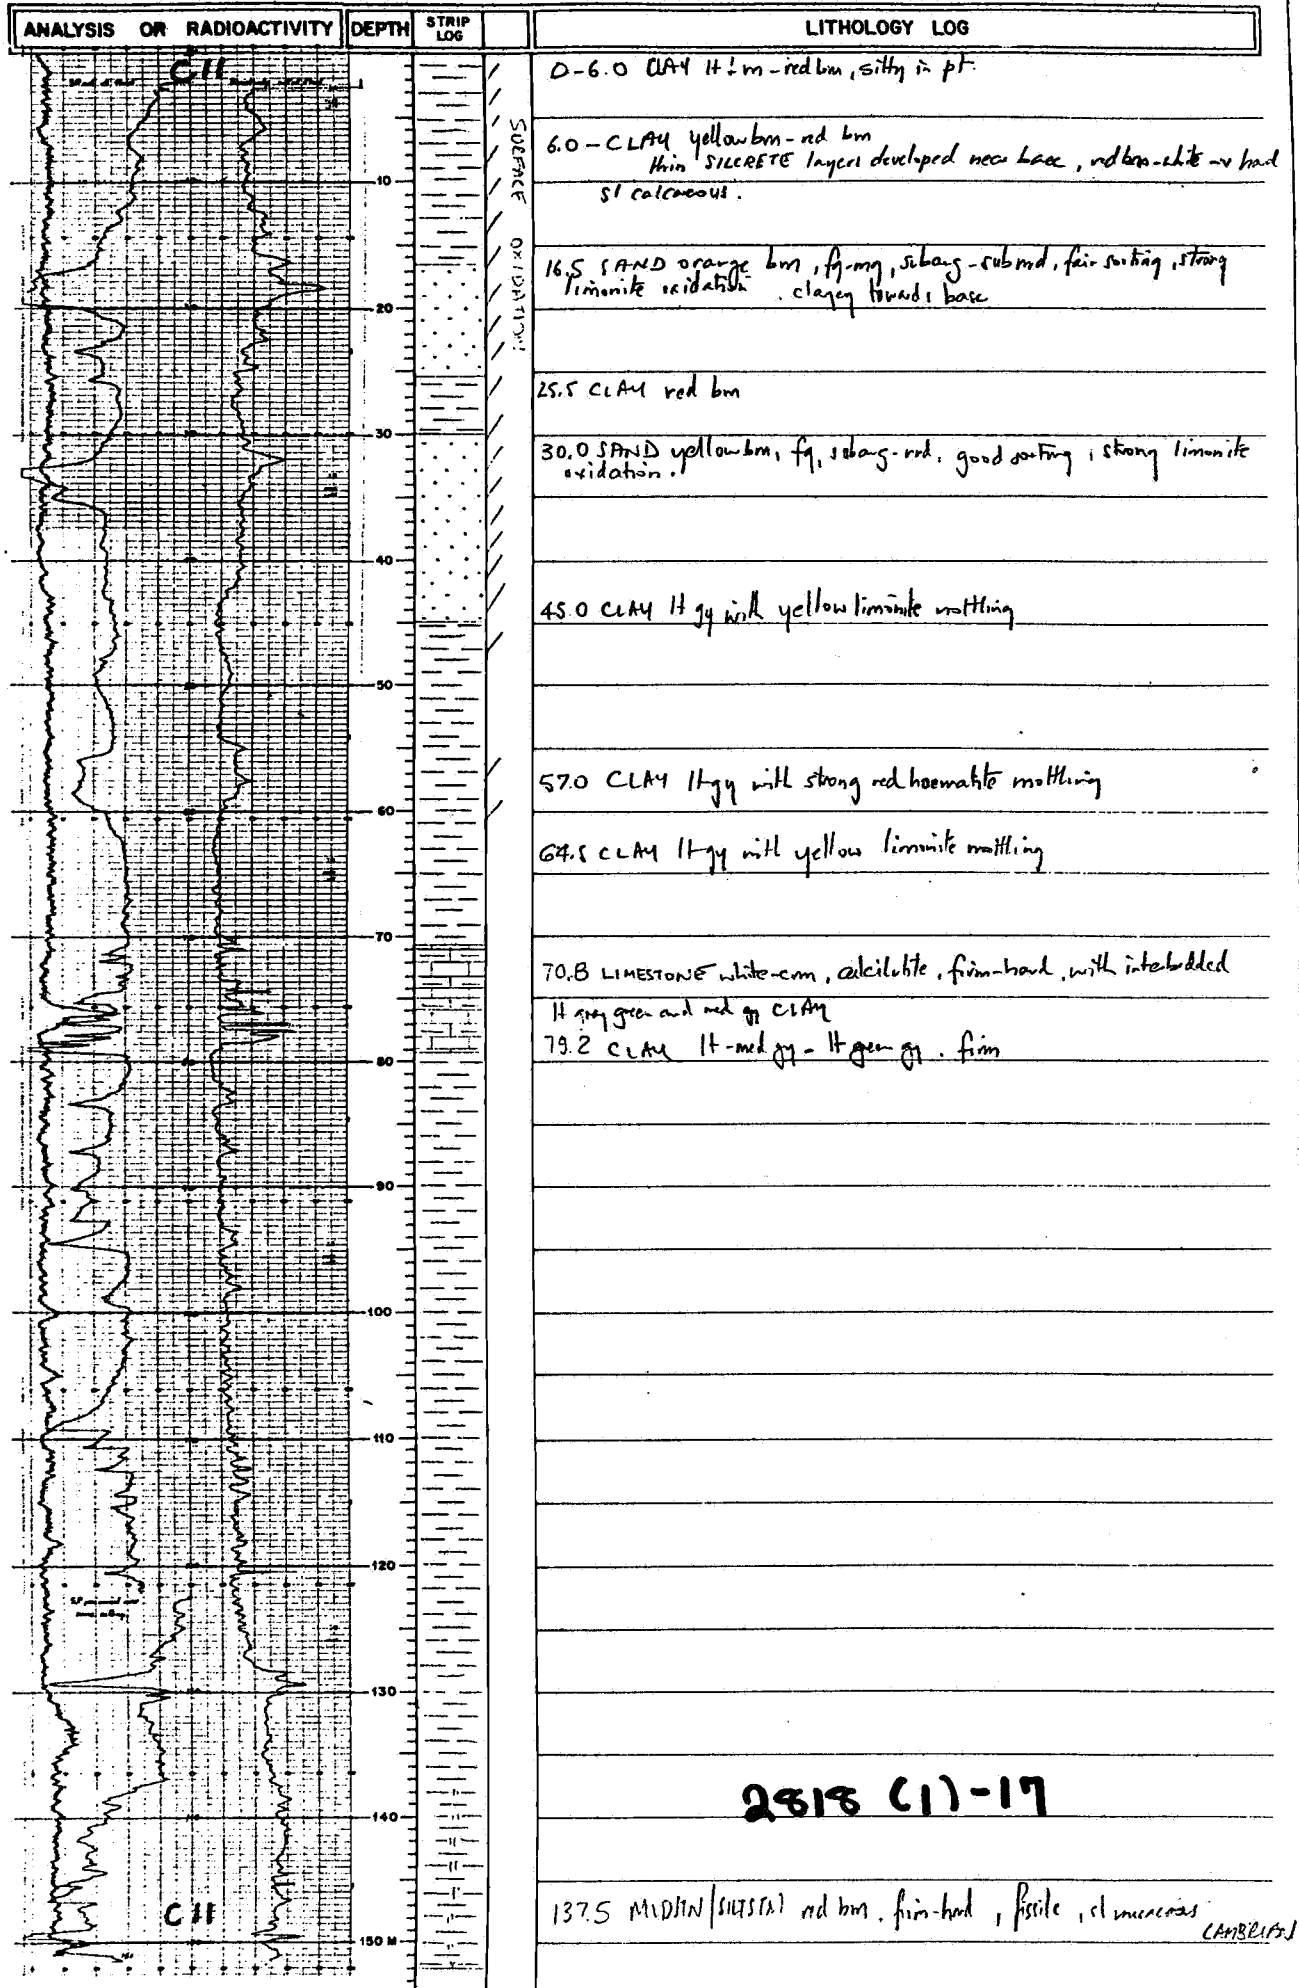 ANALYSIS OR RADIOACTIVITY
DEPTH
STRIP LOG
LITHOLOGY LOG
C11
0-6.0 CLAY lt - m - red brn, silty in pt.
6.0 - CLAY yellow brn - red brn
thin SILCRETE layers developed near base, red brn - white - v hard
sl calcareous.
SURFACE OXIDATION
10
16.5 SAND orange brn, fg-mg, subang-subrnd, fair sorting, strong
limonite oxidation. clayey towards base
20
25.5 CLAY red brn
30
30.0 SAND yellow brn, fg, subang-rnd, good sorting, strong limonite
oxidation.
40
45.0 CLAY lt gy with yellow limonite mottling
50
57.0 CLAY lt gy with strong red haematite mottling
60
64.5 CLAY lt gy with yellow limonite mottling
70
70.8 LIMESTONE white-crm, calcilutite, firm-hard, with interbedded
lt grey green and med gy CLAY
79.2 CLAY lt-med gy - lt green gy. firm
80
90
100
110
120
130
2818 (1)-17
140
137.5 MUDSTN/SILTSTN red brn. firm-hard, fissile, sl micaceous
CAMBRIAN
C11
150 M